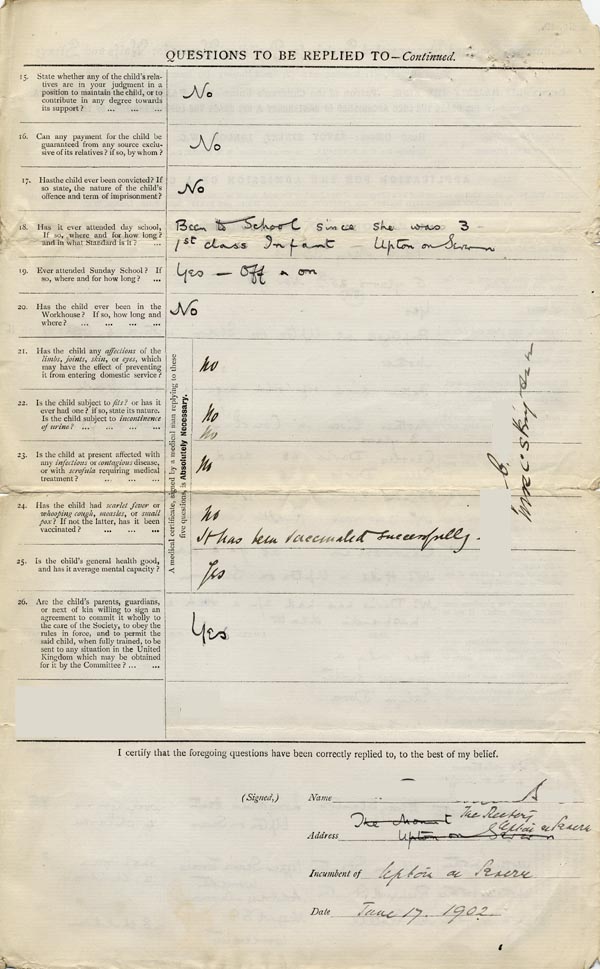 QUESTIONS TO BE REPLIED TO—Continued.
15. State whether any of the child's rela-
tives are in your judgment in a
position to maintain the child, or to
contribute in any degree towards
its support? ... ... ...
No
16. Can any payment for the child be
guaranteed from any source exclu-
sive of its relatives? if so, by whom?
No
17. Has the child ever been convicted? If
so state, the nature of the child's
offence and term of imprisonment?
No
18. Has it ever attended day school,
If so, where and for how long?
and in what Standard is it? ...
Been to School since she was 3
1st class Infant – Upton on Severn
19. Ever attended Sunday School? If
so, where and for how long? ...
Yes – Off & on
20. Has the child ever been in the
Workhouse? If so, how long and
where? ... ... ... ...
No
A medical certificate, signed by a medical man replying to these
five questions, is Absolutely Necessary.
21. Has the child any affections of the
limbs, joints, skin, or eyes, which
may have the effect of preventing
it from entering domestic service?
No
22. Is the child subject to fits? or has it
ever had one? if so, state its nature.
Is the child subject to incontinence
of urine? ... ... ... ...
No
No
23. Is the child at present affected with
any infectious or contagious disease,
or with scrofula requiring medical
treatment? ... ... ... ...
No
24. Has the child had scarlet fever or
whooping cough, measles, or small
pox? If not the latter, has it been
vaccinated? ... ... ...
No
It has been vaccinated successfully.
25. Is the child's general health good,
and has it average mental capacity?
Yes
26. Are the child's parents, guardians,
or next of kin willing to sign an
agreement to commit it wholly to
the care of the Society, to obey the
rules in force, and to permit the
said child, when fully trained, to be
sent to any situation in the United
Kingdom which may be obtained
for it by the Committee? ... ...
Yes
I certify that the foregoing questions have been correctly replied to, to the best of my belief.
(Signed,) Name B
The Rectory
Upton on Severn
Address Upton on Severn
Incumbent of Upton on Severn
Date June 17. 1902.